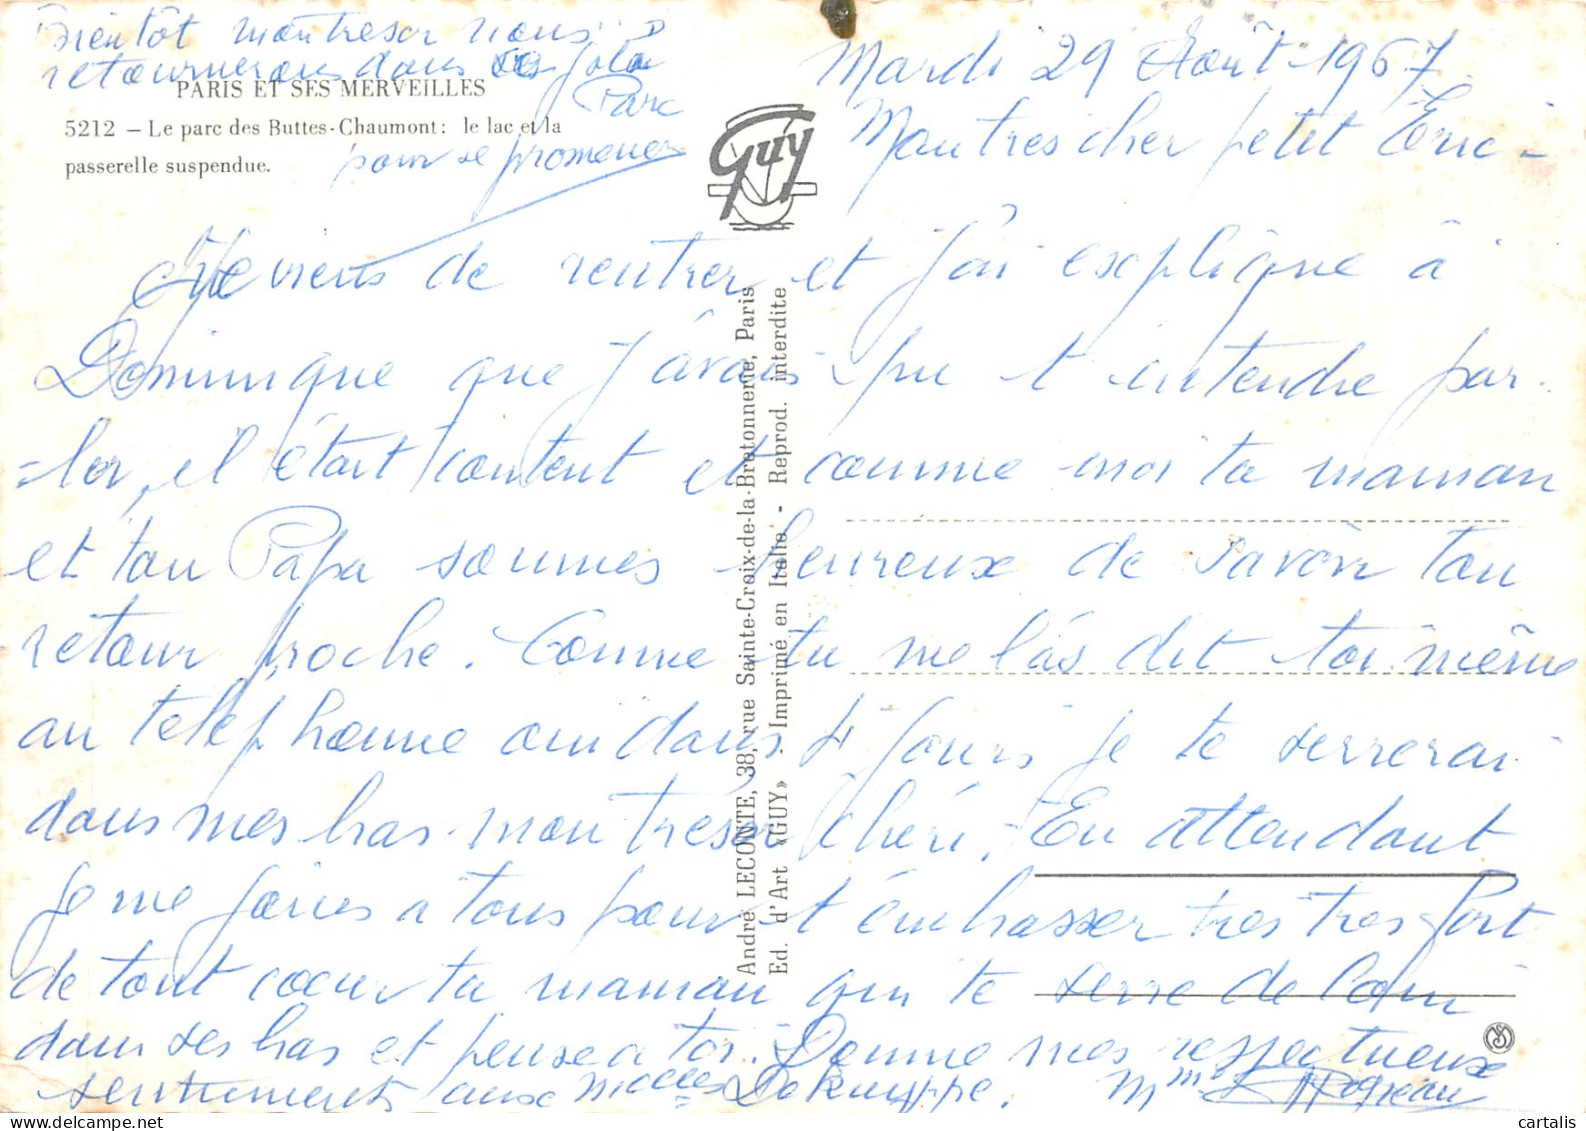 Bientôt mon tresor nous
retournerons dans ce joli
Parc
pour se promener
PARIS ET SES MERVEILLES
5212 – Le parc des Buttes-Chaumont: le lac et la
passerelle suspendue.
Guy
Mardi 29 Août 1967
Mon tres cher petit Éric -
Je viens de rentrer et j'ai explique à
Dominique que j'avais pu t'entendre par-
-ler, il était content et comme moi ta maman
et ton Papa sommes heureux de savoir ton
retour proche. Comme tu me l'as dit toi même
au telephonne oui dans 4 jours je te serrerai
dans mes bras mon tresor chéri. En attendant
je me joins a tous pour t'embrasser tres tres fort
de tout coeur ta maman qui te serre de loin
dans ses bras et pense a toi. Donne mes respectueux
sentiments aux Melles Mme
André LECONTE, 38, rue Sainte-Croix-de-la-Bretonnerie, Paris
Ed. d'Art «GUY» - Imprimé en Italie - Reprod. interdite
cartalis